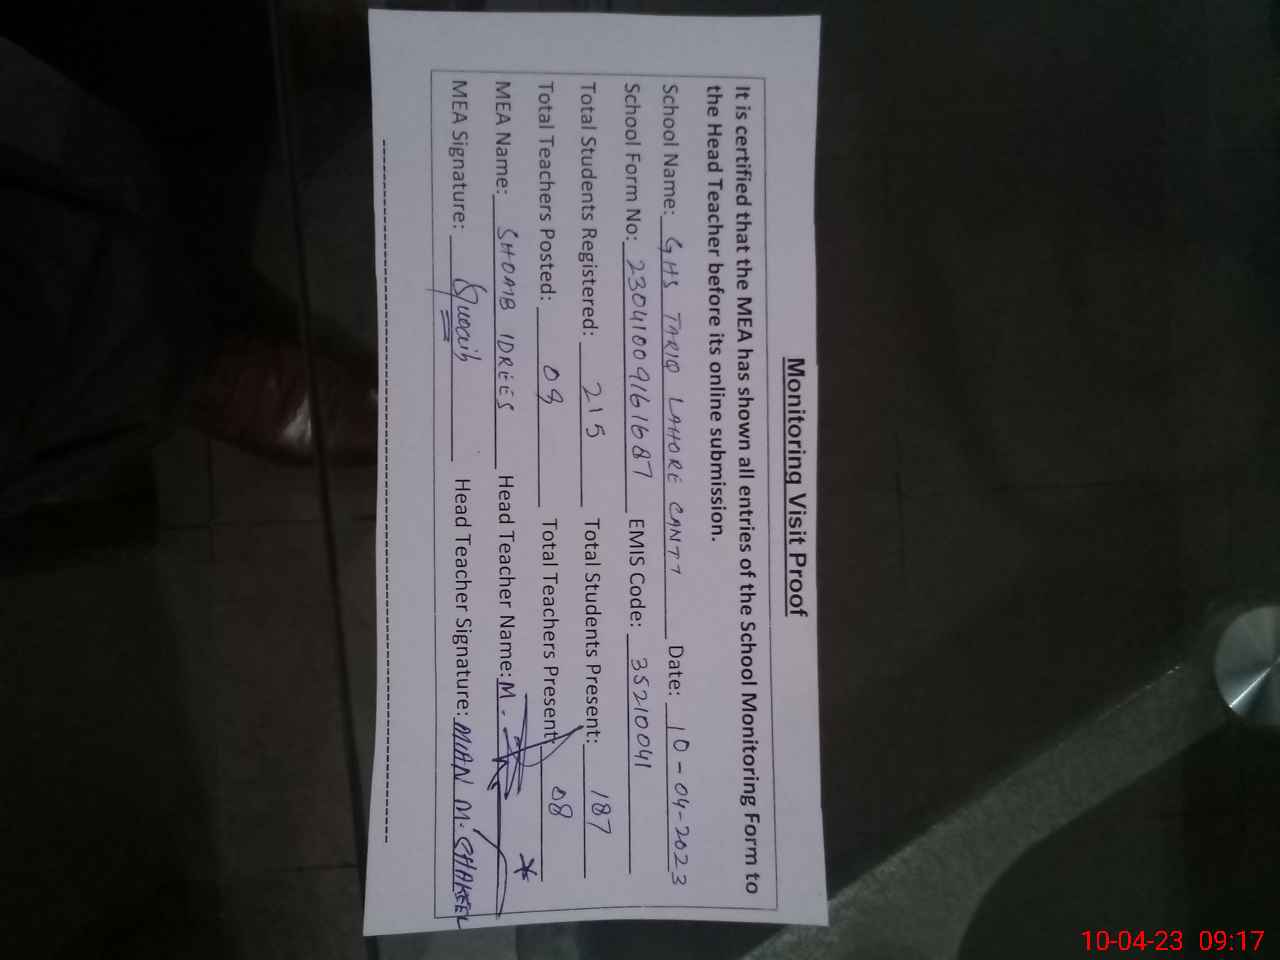 Monitoring Visit Proof
It is certified that the MEA has shown all entries of the School Monitoring Form to
the Head Teacher before its online submission.
School Name: GHS TARIQ LAHORE CANTT Date: 10-04-2023
School Form No: 23041009161687 EMIS Code: 35210041
Total Students Registered: 215 Total Students Present: 187
Total Teachers Posted: 09 Total Teachers Present: 08
MEA Name: SHOAIB IDREES Head Teacher Name: M.
MEA Signature: Head Teacher Signature: MIAN M. SHAKEEL
10-04-23 09:17